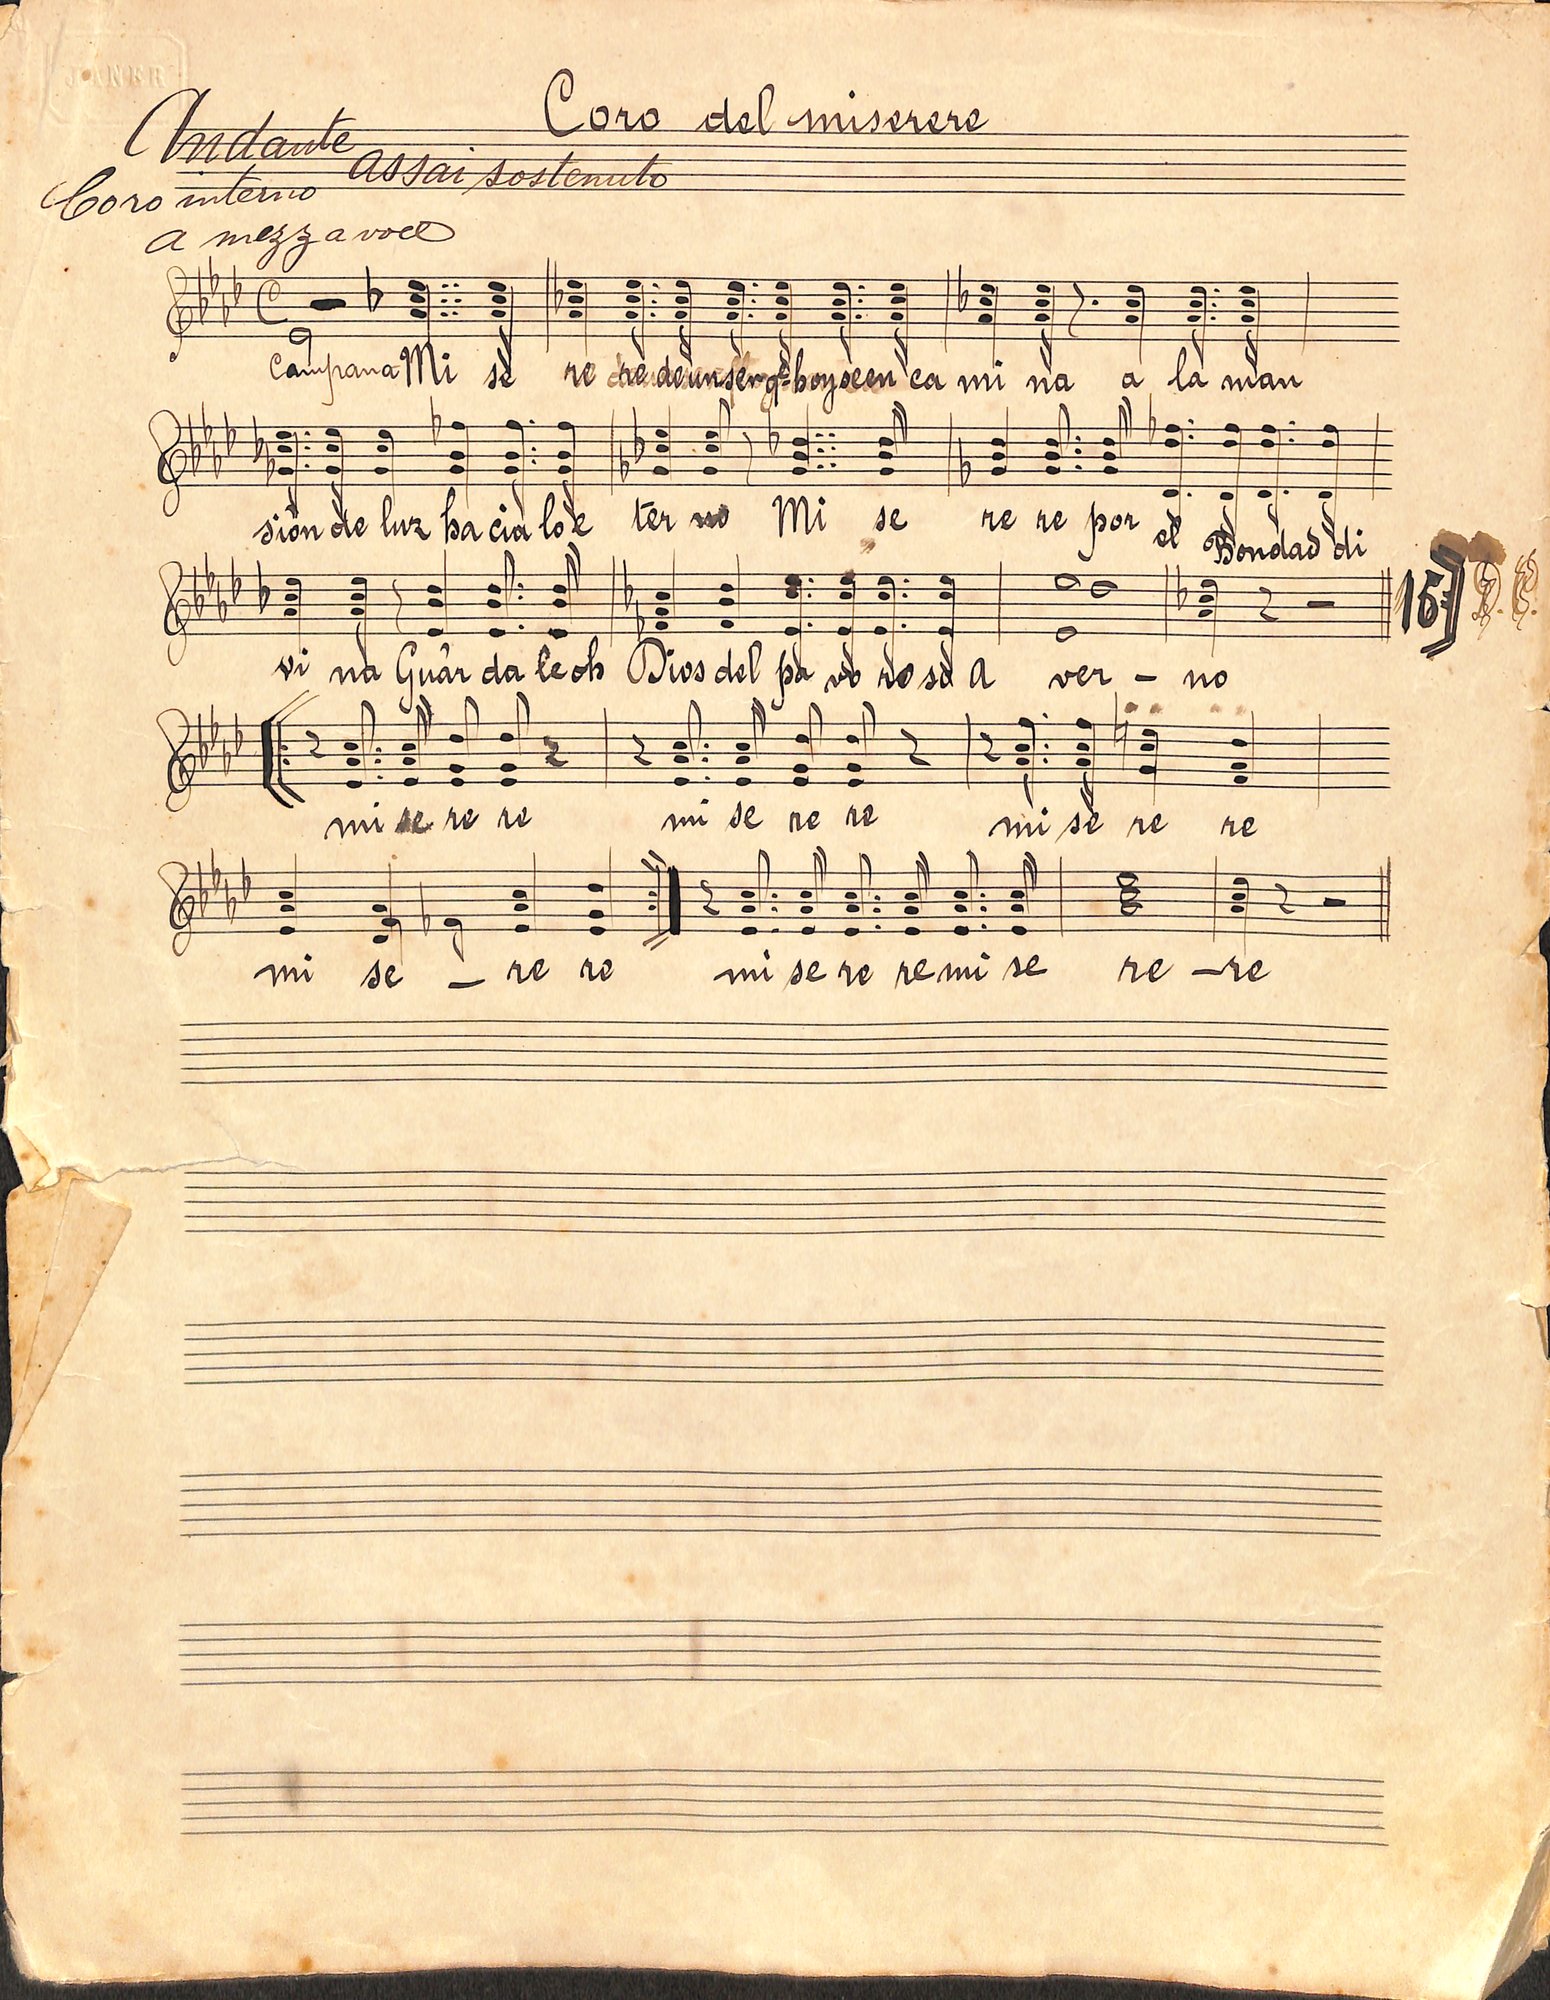 JANER
Coro del miserere
Andante
assai sostenuto
Coro interno
a mezza voce
Campana Mi se re re de un ser q.e hoy se en ca mi na a la man
sión de luz ha cia lo e ter no Mi se re re por el Bondad di
vi na Guár da le oh Dios del pa vo ro so A ver - no
15
mi se re re mi se re re mi se re re
mi se - re re mi se re re mi se re - re